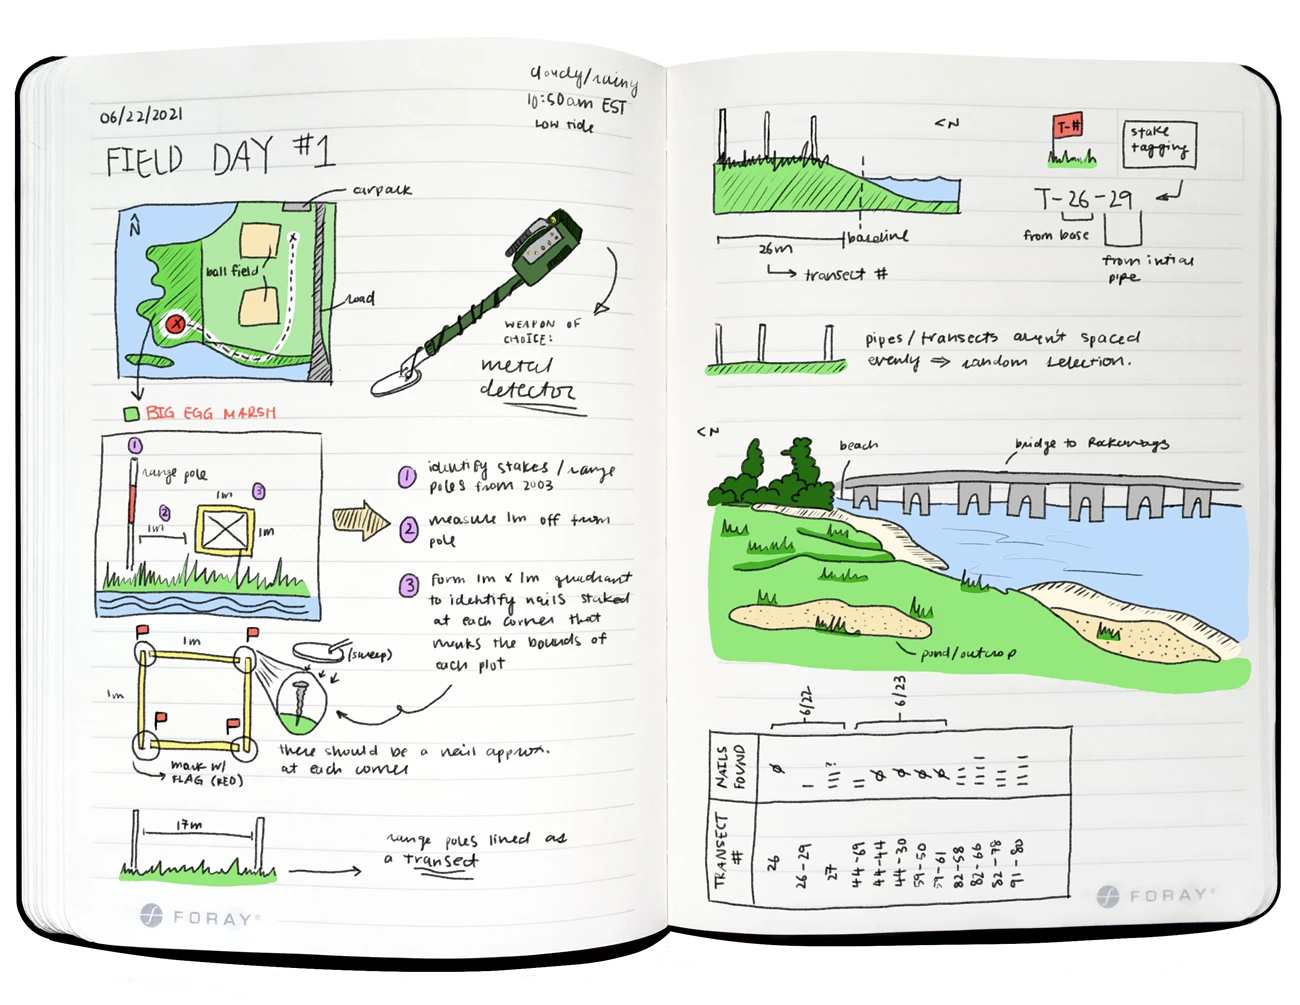 06/22/2021
cloudy/rainy
10:50am EST
LOW tide
FIELD DAY #1
carpark
N
ball field
road
X
X
WEAPON OF
CHOICE:
metal
detector
BIG EGG MARSH
1
range pole
2
1m
1m
3
1m
1 identify stakes / range
poles from 2003
2 measure 1m off from
pole
3 form 1m x 1m quadrant
to identify nails staked
at each corner that
marks the bounds of
each plot
1m
1m
(sweep)
there should be a nail approx.
at each corner
mark w/
FLAG (RED)
17m
range poles lined as
a transect
FORAY
<N
T-#
stake
tagging
T-26-29
from base
from intial
pipe
26m
baseline
→ transect #
pipes / transects aren't spaced
evenly ⇒ random selection.
<N
beach
bridge to Rockaways
pond/outcrop
6/22
6/23
NAILS
FOUND
Ø
I
III?
II
Ø
Ø
Ø
Ø
III
IIII
III
IIII
TRANSECT
#
26
26-29
27
44-69
44-44
44-30
59-50
59-61
82-58
82-66
82-78
91-80
FORAY